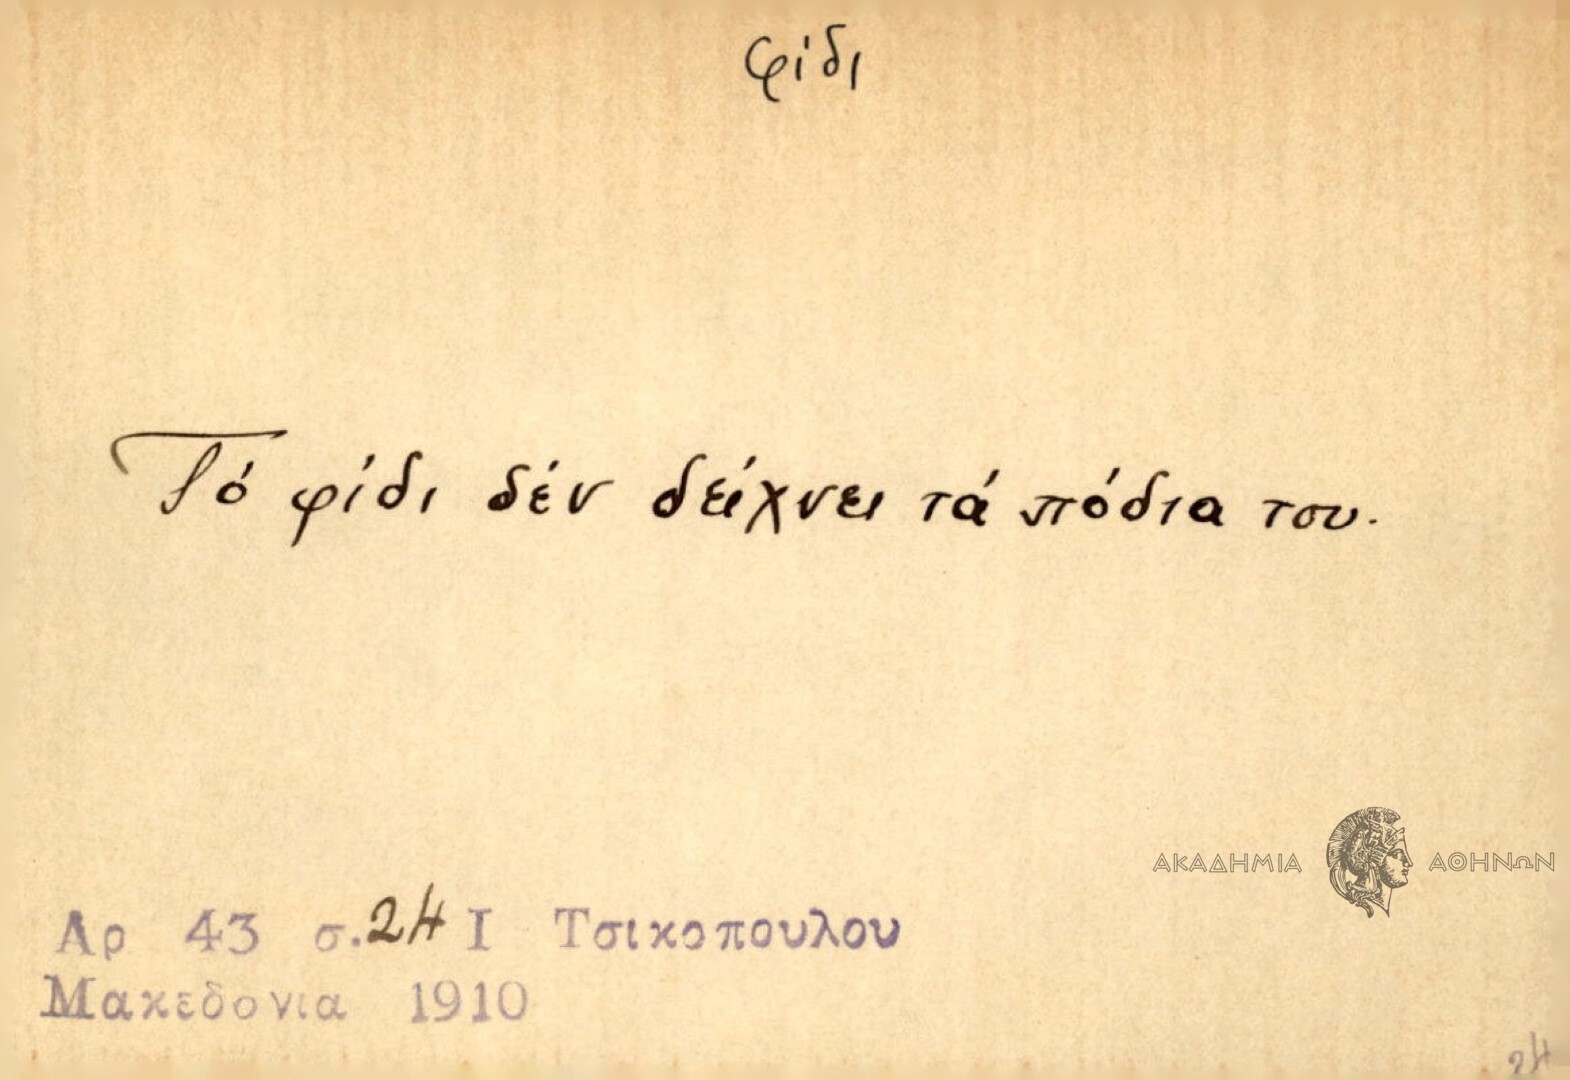 φίδι
Τό φίδι δέν δείχνει τά πόδια του.
ΑΚΑΔΗΜΙΑ ΑΘΗΝΩΝ
Αρ 43 σ.24 Ι Τσικοπουλου
Μακεδονια 1910
24